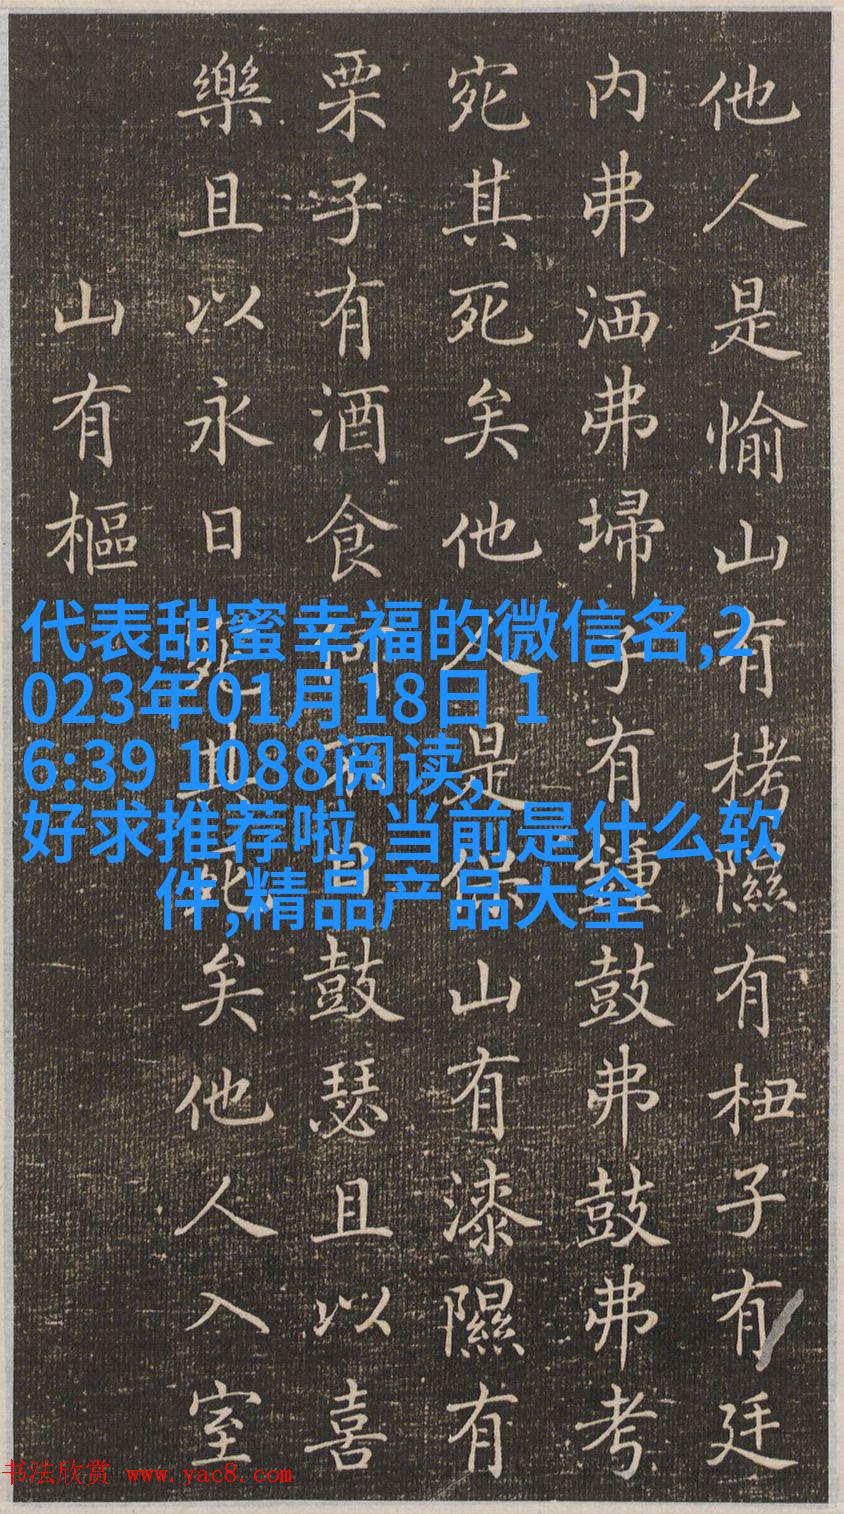 他人是愉山有栲隰有杻子有廷
内弗洒弗埽子有鍾鼓弗鼓弗考
宛其死矣他人是保山有漆隰有
栗子有酒食何不日鼓瑟且以喜
樂且以永日宛其死矣他人入室
山有樞
代表甜蜜幸福的微信名,2
023年01月18日 1
6:39 1088阅读,
好求推荐啦,当前是什么软
件,精品产品大全
书法欣赏 www.yac8.com